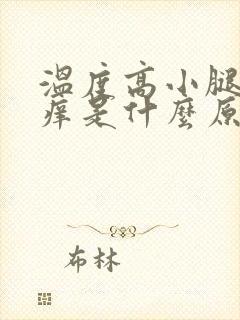 温度高小腿
痒是什麼原
布林